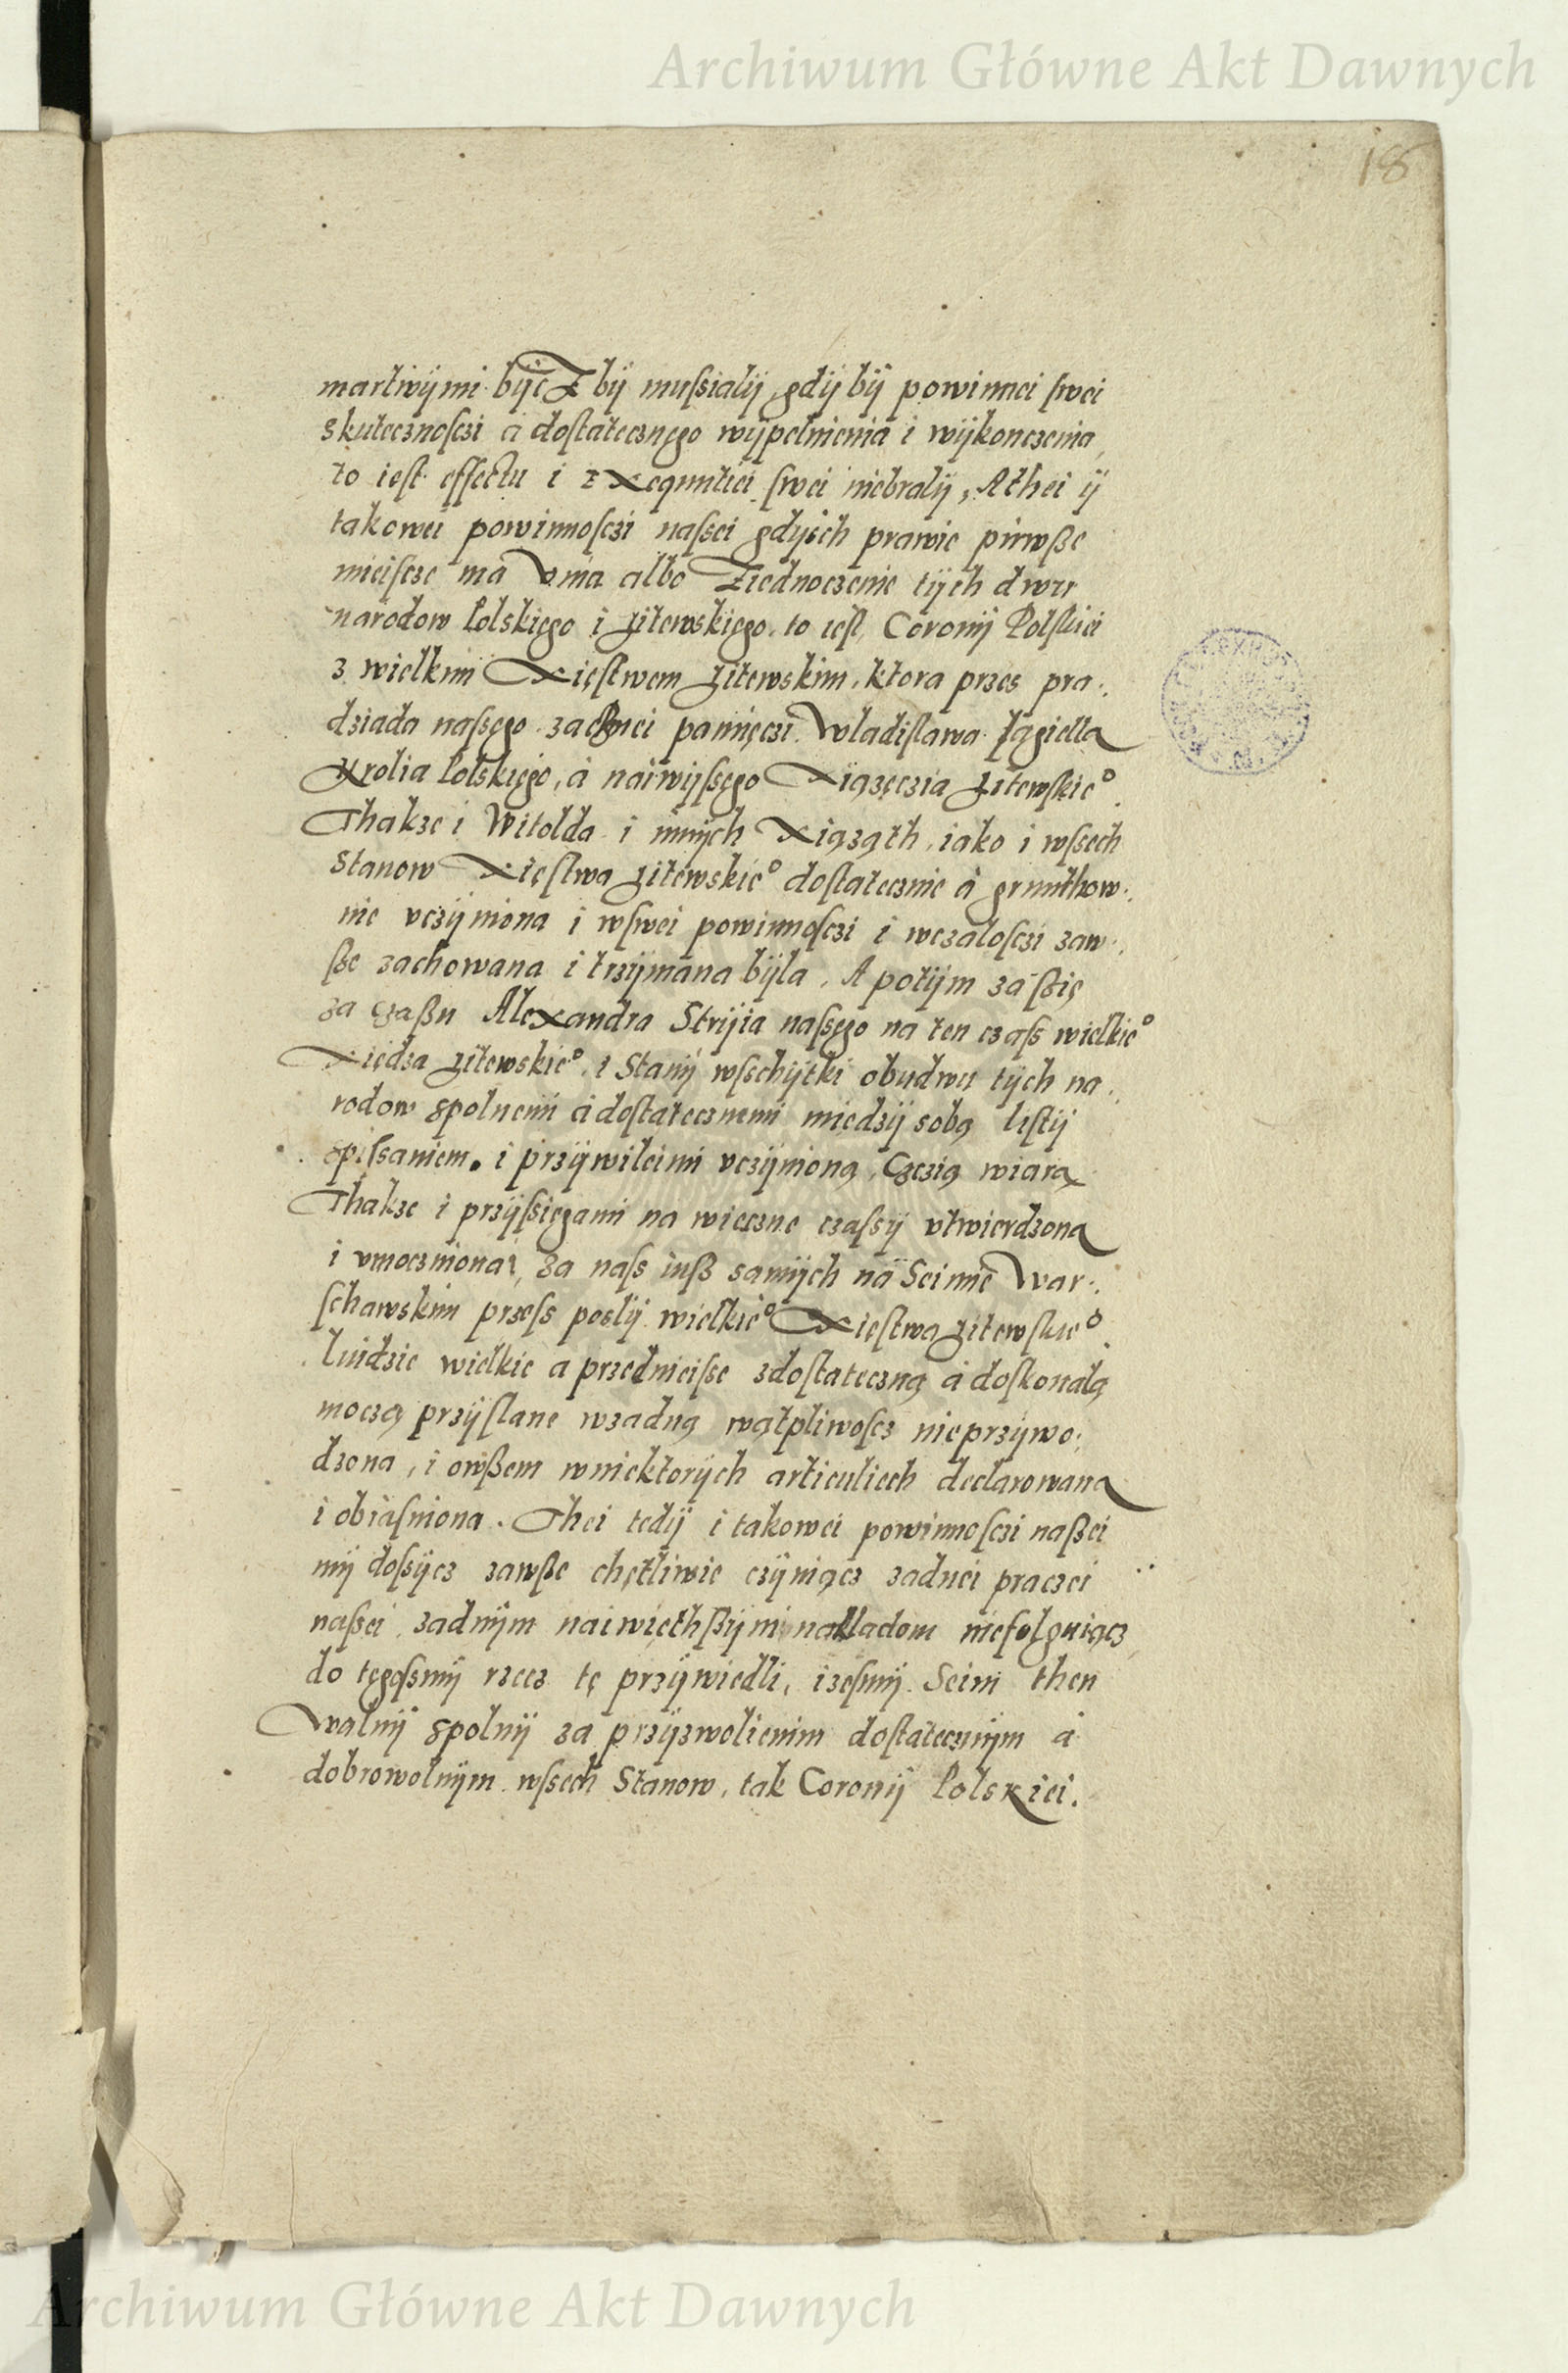 Archiwum Główne Akt Dawnych
18
martwÿmi bÿcz bÿ muſsialÿ, gdÿ bÿ powinnei ſwei
skutecznoſczi á doſtatecznego wÿpelnienia i wÿkonczenia,
to ieſt effectu i Exequutiei ſwei niebralÿ, A thei ÿ
takowei powinnoſczi naſsei gdÿsch prawie pirwße
mieiſcze ma Vnia albo Ziednoczenie tÿch dwu
narodow Polskiego i Litewskięgo, to ieſt, Coronÿ Polſkiei
z wielkim Xięſtwem Litewskim, ktora przes pra:
dziada naſsęgo zacznei pamięczi Wladiſlawa Jągiella
Krolia Polskięgo, á naiwijſsęgo Xiązęczia Litewſkieº
Thakze i Witolda i innÿch Xiąząth, iako i wſsech
Stanow Xięſtwa Litewskieº doſtatecznie á grunthow:
nie vczÿniona i wſwei powinnoſczi i wczaloſczi zaw:
ße zachowana i trzÿmana bÿla, A potÿm zá ſzię
za czaßu Alexandra Strÿia naſsęgo na ten czaſs wielkieº
Xiędza Litewskieº, i Stanÿ wſschÿtki obudwu tÿch na:
rodow spolnemi á doſtatecznemi międzÿ sobą liſtÿ
opiſsaniem, i przÿwileimi vczÿnioną, Czczią wiarą
Thakze i przÿſsięgami na wieczne czaſsÿ vtwierdzona
i vmoczniona, Za naſs iuß samÿch ná Seimie War:
ſchawskim przeſs poslÿ wielkieº Xięſtwa Litewſkieº
luidzie wielkie a przednieiſse zdoſtateczną á doſkonalą
moczą przÿſlane wzadną wątpliwoſcz nieprzÿwo:
dzona, i owßem wniektorÿch articuliech declarowana
i obiaſniona. Thei tedÿ i takowei powinnoſczi naßei
mÿ doſsÿcz zawße chętliwie czÿniącz zadnei praczei
naſsei zadnÿm naiwięthßÿm nakladom niefolguiącz,
do tęgoſsmÿ rzecz tę przÿwiedli, izeſmÿ Seim then
Walnÿ spolnÿ za przÿzwolienim doſtatecznÿm á
dobrowolnÿm wſsech Stanow, tak Coronÿ Polskiei.
Archiwum Główne Akt Dawnych